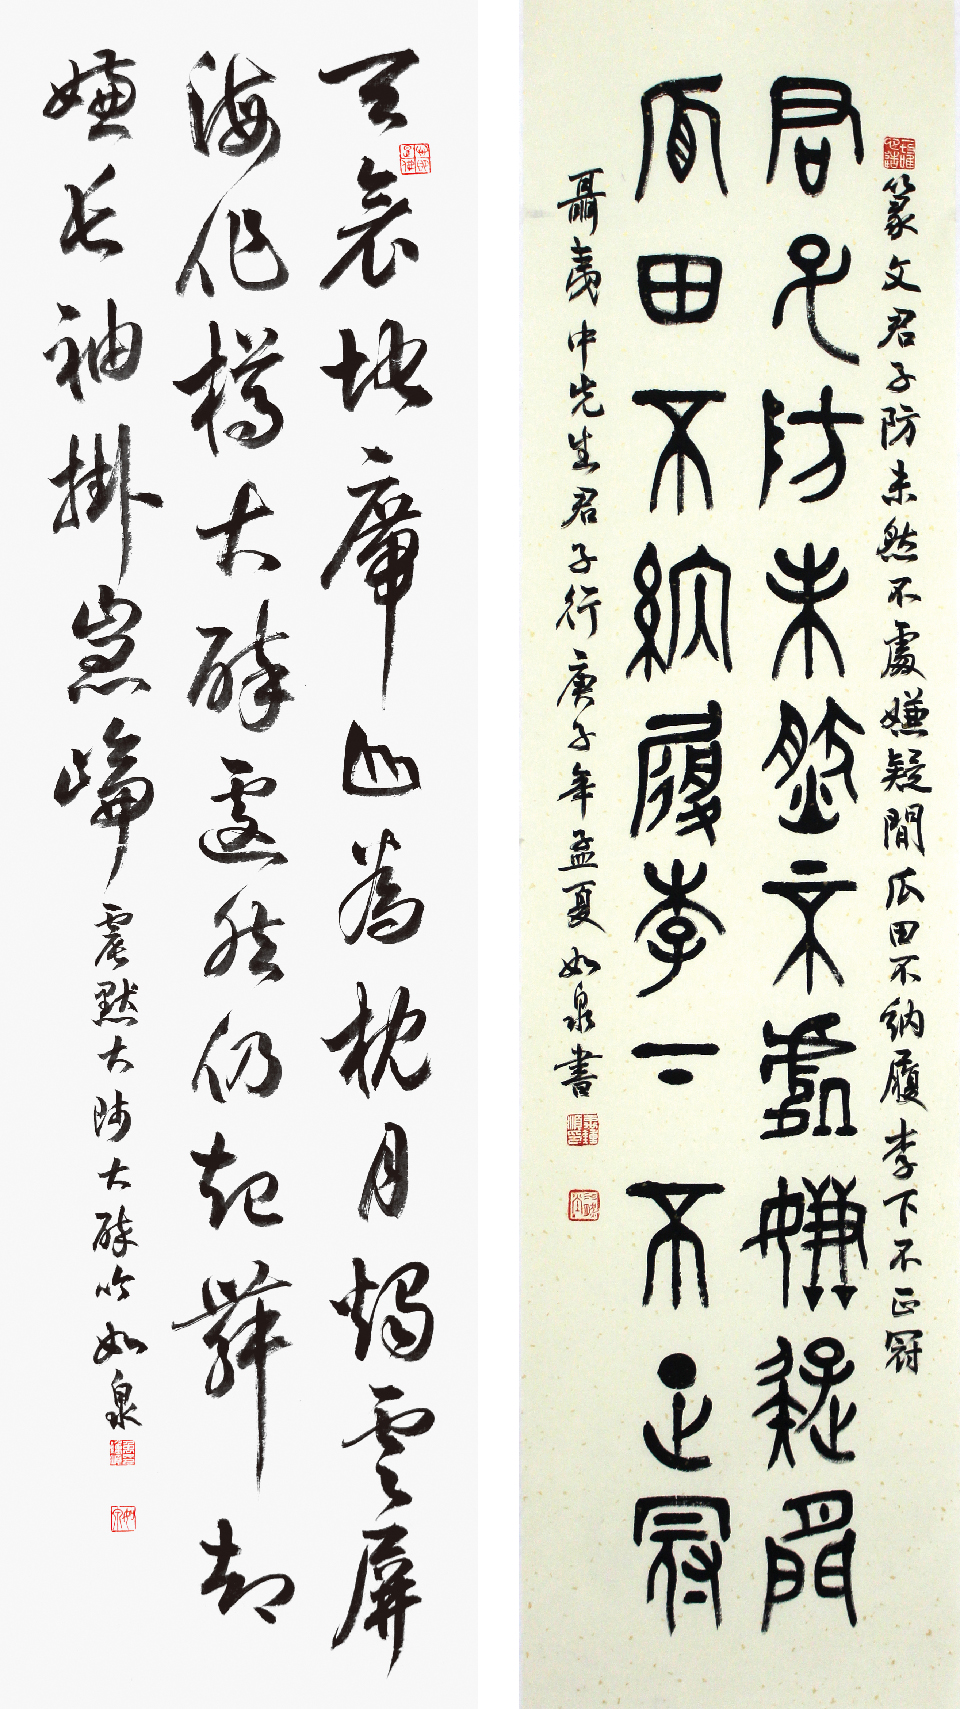 篆文君子防未然不處嫌疑間瓜田不納履李下不正冠
君子防未然不處嫌疑間
瓜田不納履李下不正冠
聶夷中先生君子行庚子年孟夏如泉書
天衾地席山為枕月燭雲屏
海作樽大醉遽然仍起舞却
嫌長袖掛崑崙震默大师大醉吟如泉